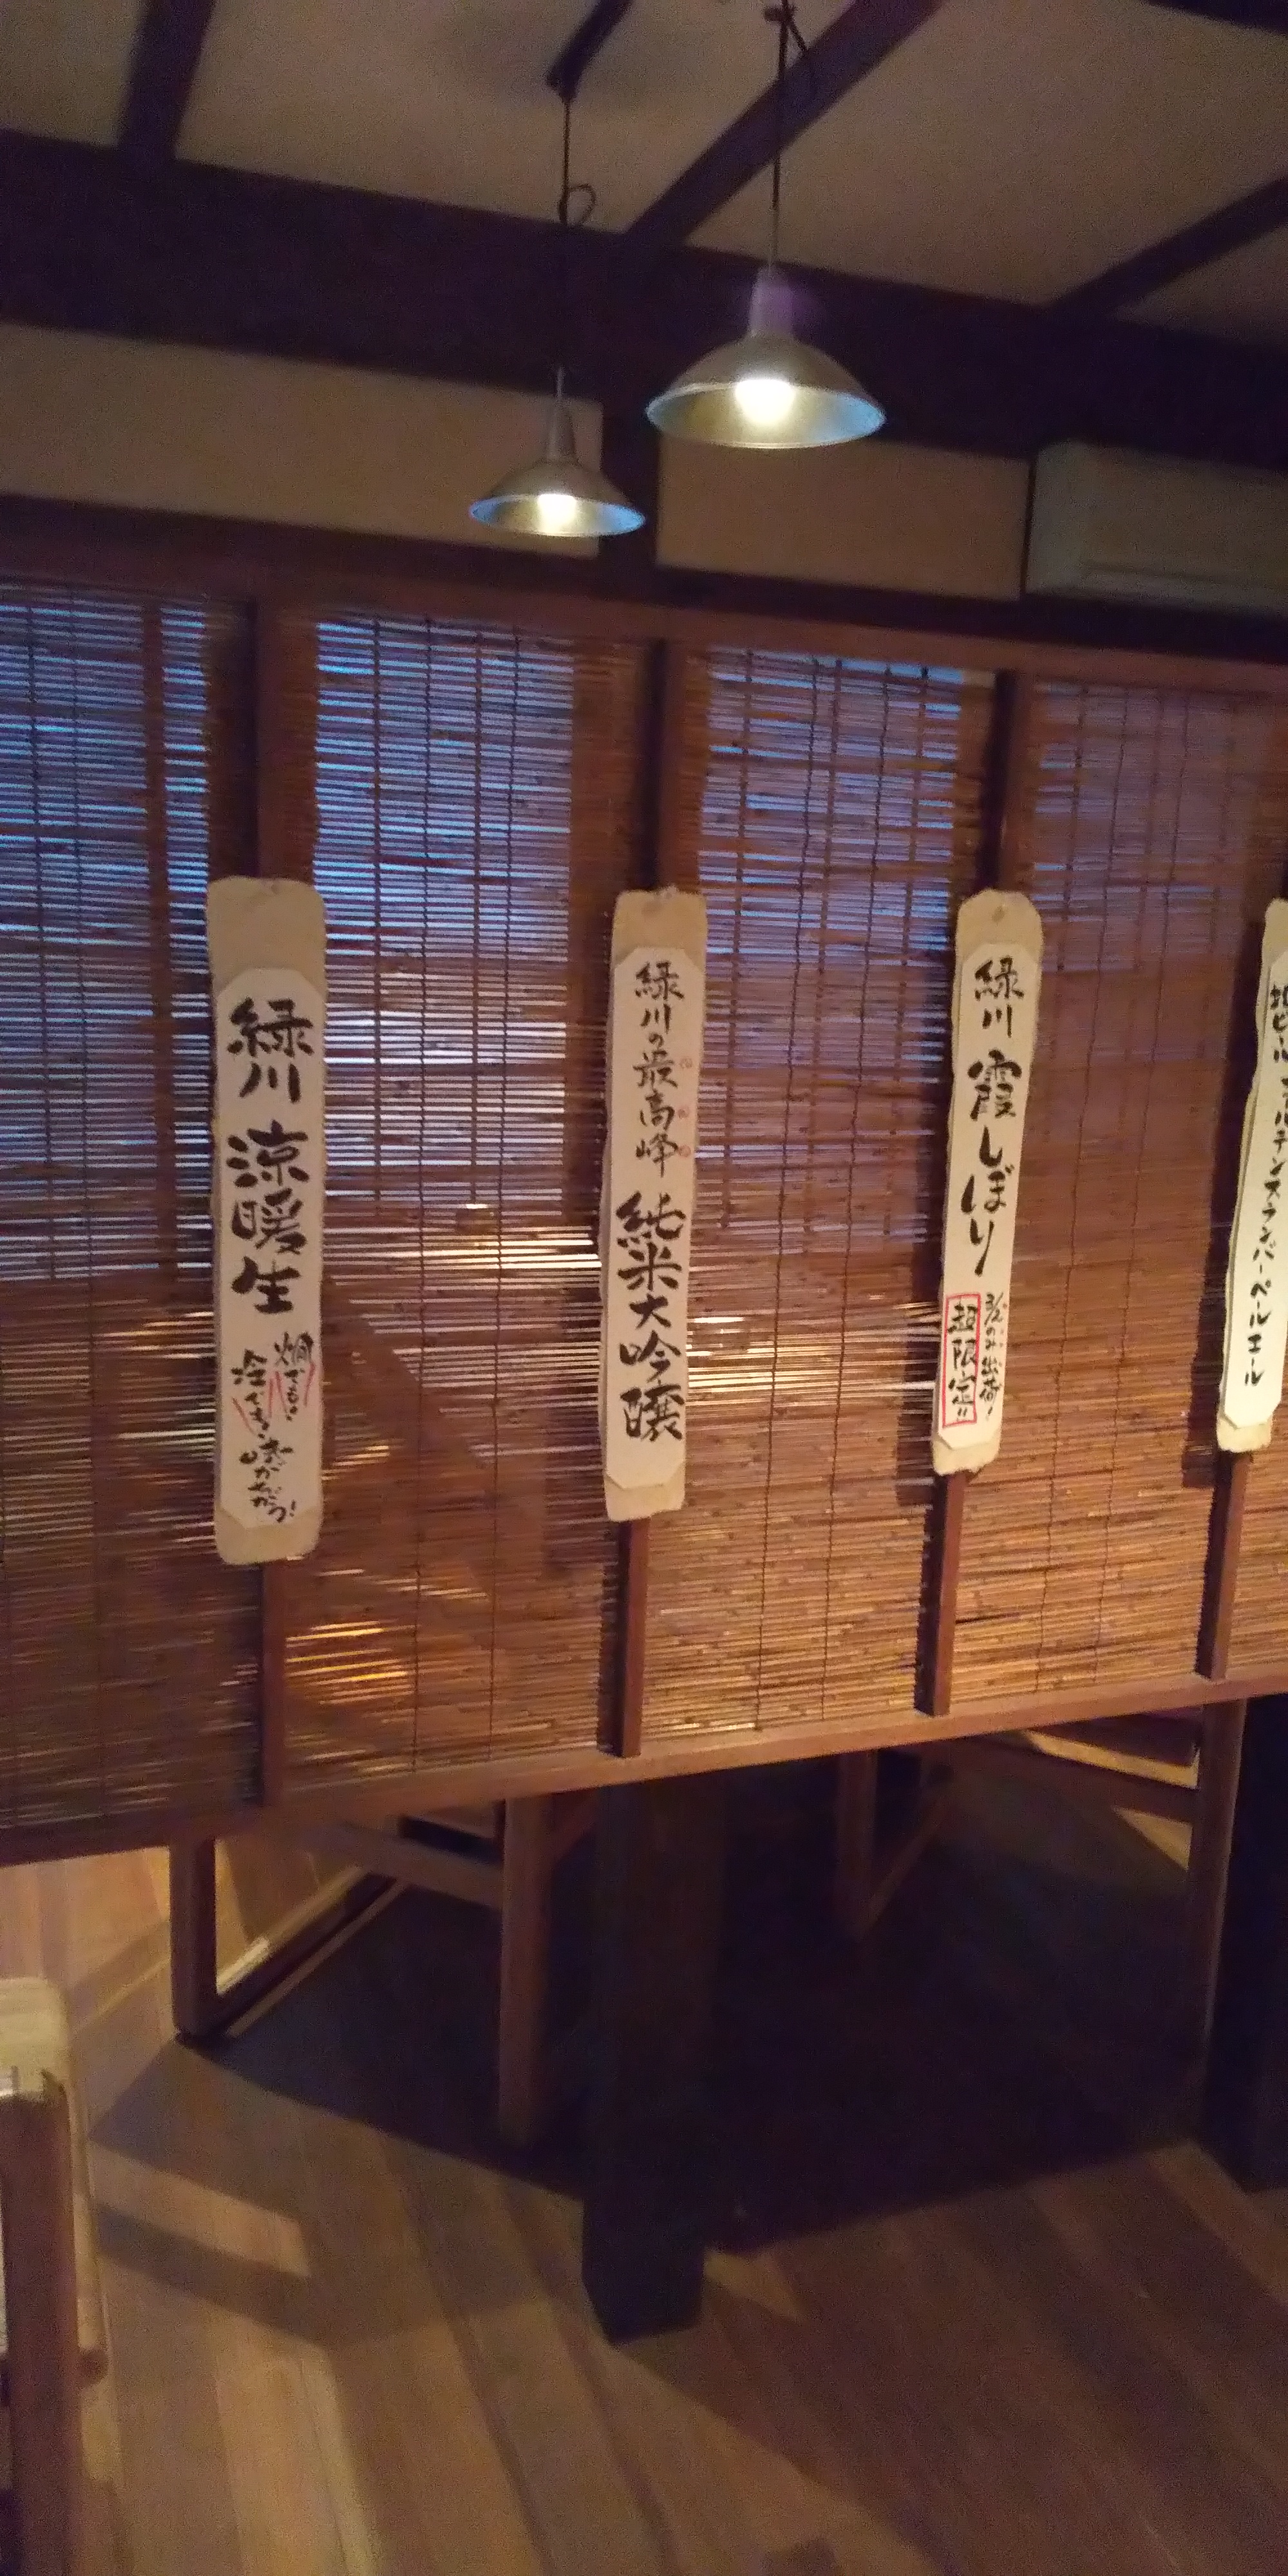 緑川 涼暖生
燗でも!
冷でも!
味がちがう!
緑川の最高峰 純米大吟醸
緑川 霞しぼり
超限定!!
地ビール ゴールデンアンバーペールエール